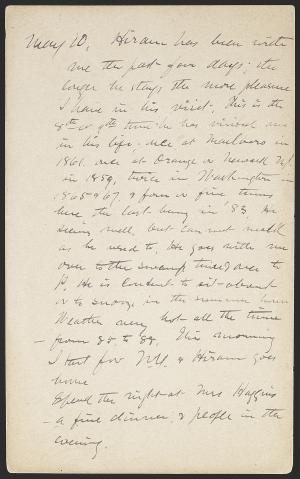 May 10, Hiram has been with
me the past four days; the
longer he stays the more pleasure
I have in his visit. This is the
8th or 9th time he has visited me
in his life, once at Marlboro in
1861, once at Orange or Newark N.J.
in 1859, twice in Washington in
1865 & 67, & four or five times
here the last being in '83. He
seems well, but can not walk
as he used to. He goes with me
over to the swamp twice, over to
P. He is content to sit about
or to snooze in the summer house
Weather very hot all the time
— from 85 to 89. This morning
I start for N.Y. & Hiram goes
home
Spend the night at Mrs Haggins
— a fine dinner, & people in the
evening.